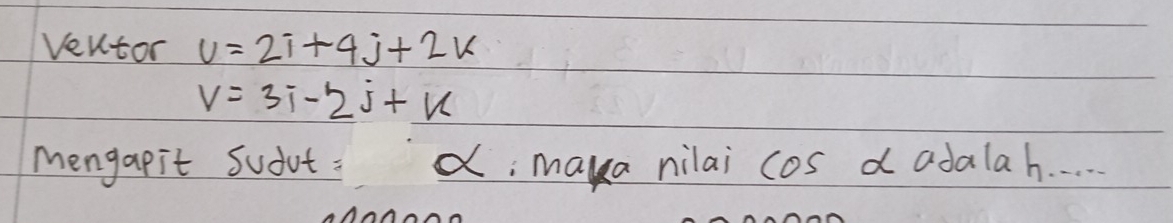 Vektor u = 2i + 4j + 2k
v = 3i - 2j + k
Mengapit sudut = α : maka nilai cos α adalah.....